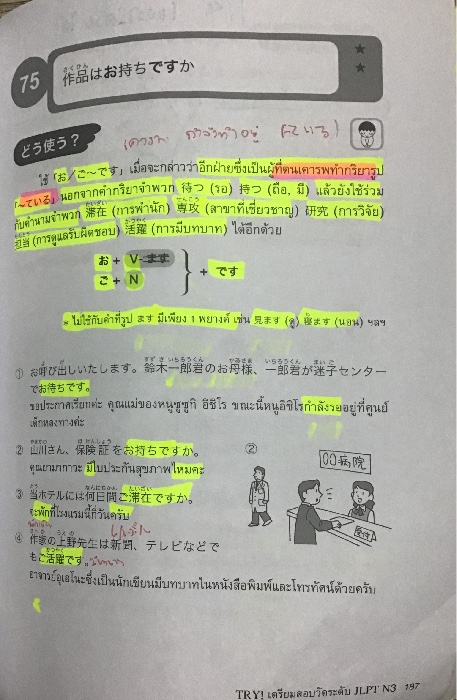 75
作品はお持ちですか
★
★
どう使う?
เคารพ กำลังทำอยู่ (ている)
ใช้ 「お/ご〜です」 เมื่อจะกล่าวว่าอีกฝ่ายซึ่งเป็นผู้ที่ตนเคารพทำกริยารูป
「〜ている」 นอกจากคำกริยาจำพวก 待つ (รอ) 持つ (ถือ, มี) แล้วยังใช้ร่วม
กับคำนามจำพวก 滞在 (การพำนัก) 専攻 (สาขาที่เชี่ยวชาญ) 研究 (การวิจัย)
担当 (การดูแลรับผิดชอบ) 活躍 (การมีบทบาท) ได้อีกด้วย
お + V-ます
ご + N
+ です
* ไม่ใช้กับคำที่รูป ます มีเพียง 1 พยางค์ เช่น 見ます (ดู) 寝ます (นอน) ฯลฯ
① お呼び出しいたします。鈴木一郎君のお母様、一郎君が迷子センター
でお待ちです。
ขอประกาศเรียกค่ะ คุณแม่ของหนูซูซูกิ อิชิโร ขณะนี้หนูอิชิโรกำลังรออยู่ที่ศูนย์
เด็กหลงทางค่ะ
② 山川さん、保険証をお持ちですか。
คุณยามากาวะ มีใบประกันสุขภาพไหมคะ
③ 当ホテルには何日間ご滞在ですか。
จะพักที่โรงแรมนี้กี่วันครับ
④ 作家の上野先生は新聞、テレビなどで
もご活躍です。
อาจารย์อุเอโนะซึ่งเป็นนักเขียนมีบทบาทในหนังสือพิมพ์และโทรทัศน์ด้วยครับ
②
〇〇病院
受付
TRY! เตรียมสอบวัดระดับ JLPT N3 197